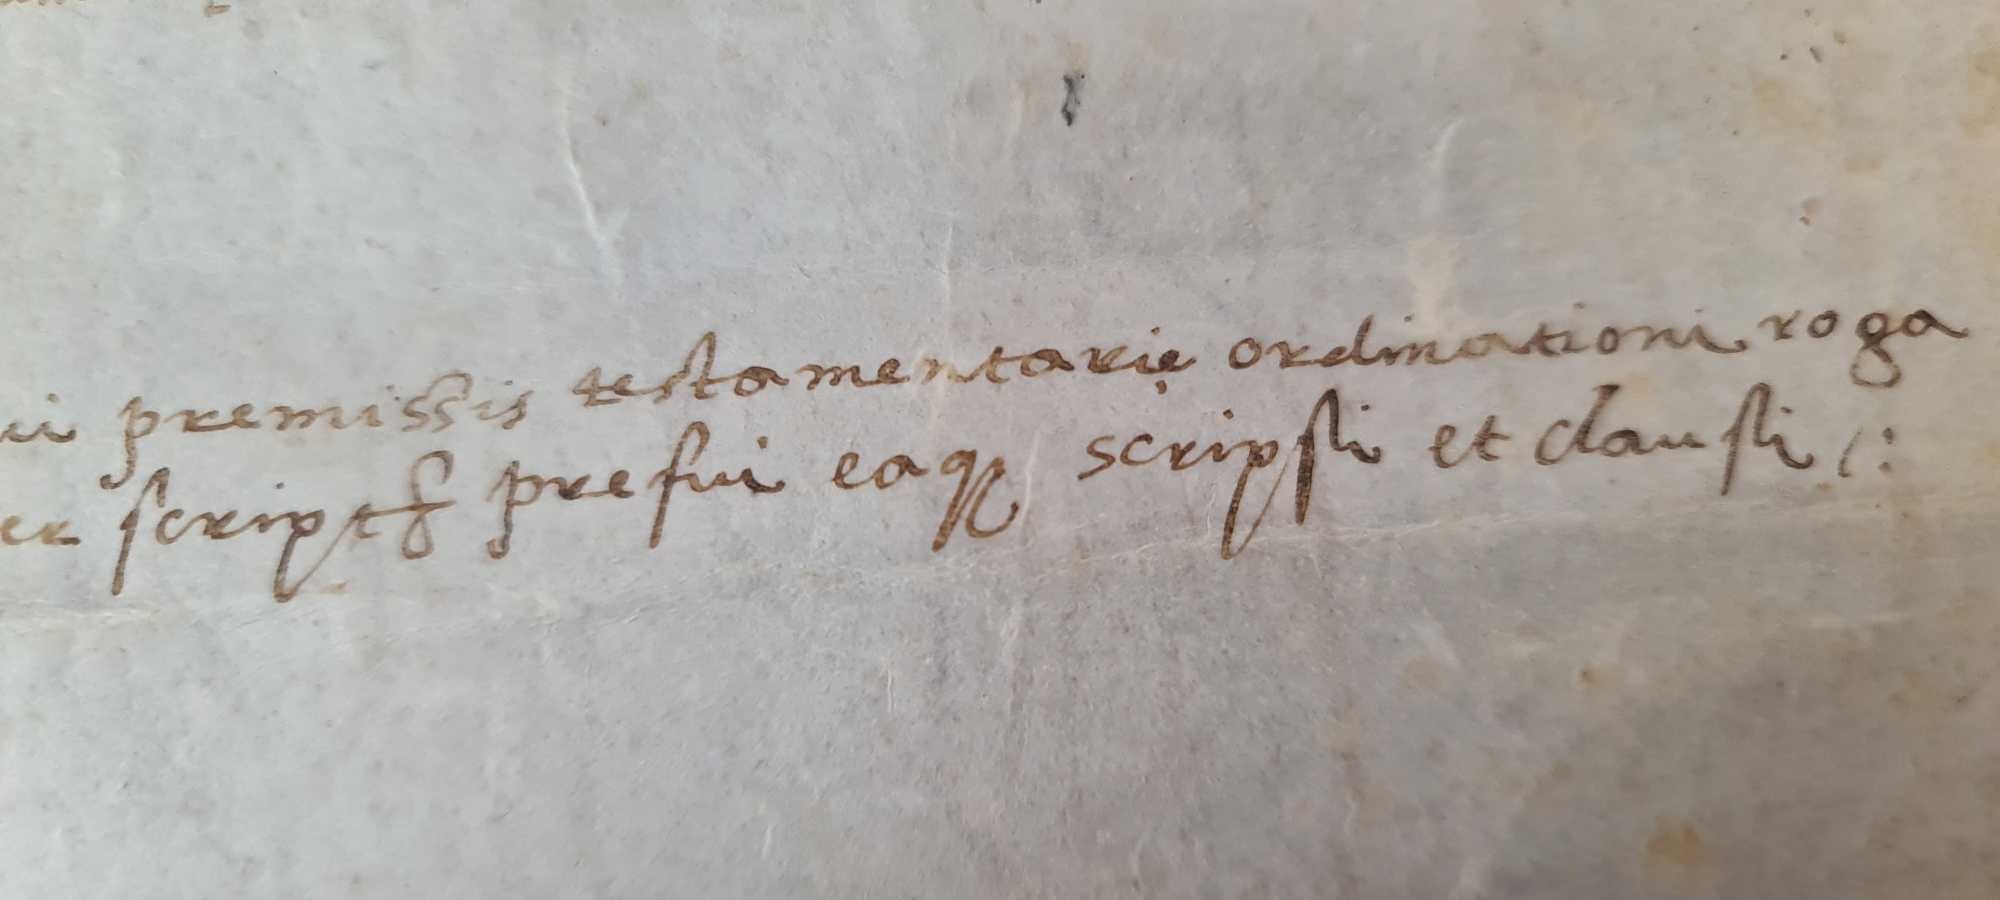 ii premissis testamentarię ordinationi roga
er script prefui eaq scripsi et clausi /: